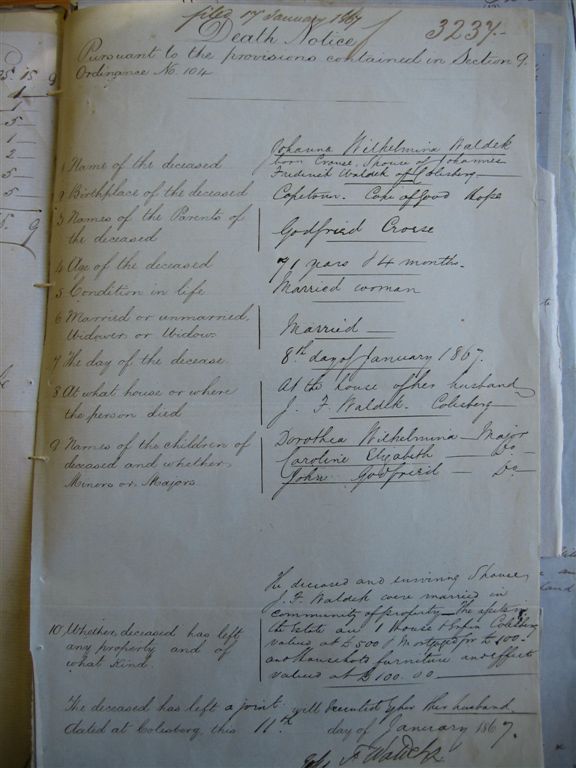 filed 17 January 1867
3237.-
Death Notice
Pursuant to the provisions contained in Section 9.
Ordinance No. 104
1 Name of the deceased
Johanna Wilhelmina Waldek
born Crouse, Spouse of Johannes
Frederick Waldek of Colesberg
2 Birthplace of the deceased
Capetown. Cape of Good Hope
3 Names of the Parents of
the deceased
Godfried Crouse
4 Age of the deceased
71 years & 4 months.
5 Condition in life
Married woman
6 Married or unmarried,
Widower or Widow.
Married
7 The day of the decease.
8th day of January 1867.
8 At what house or where
the person died
At the house of her husband
J. F. Waldek. Colesberg
9 Names of the children of
deceased and whether
Minors or Majors
Dorothea Wilhelmina - Major
Caroline Elizabeth - Do -
John Godfried - Do -
10 Whether deceased has left
any property and of
what kind.
The deceased and surviving Spouse,
J. F. Waldek were married in
community of property - The assets in
the Estate are 1 House & Erf in Colesberg
valued at £500 & Mortgaged for £100-
and household furniture and effects
valued at £100.00
The deceased has left a joint will executed by her & her husband
dated at Colesberg this 11th day of January 1867.
F Waldek